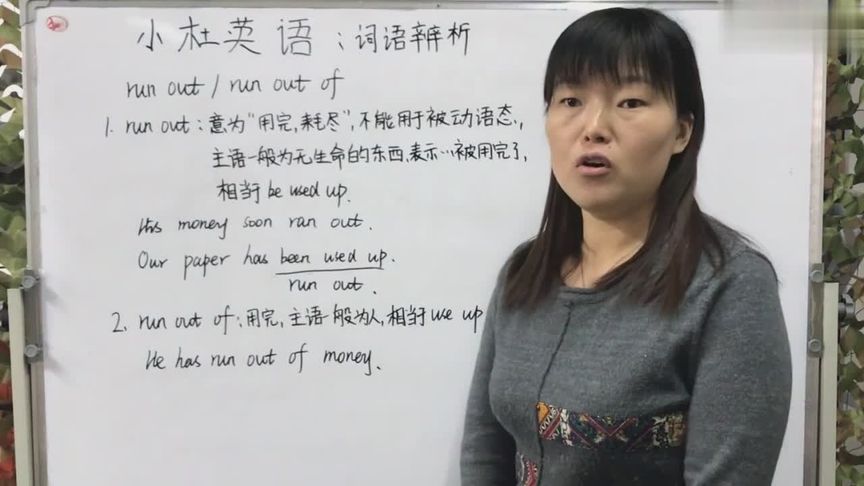 小杜英语：词语辨析
run out / run out of
1. run out：意为"用完,耗尽",不能用于被动语态.,
主语一般为无生命的东西,表示…被用完了,
相当于 be used up.
His money soon ran out.
Our paper has been used up.
run out.
2. run out of：用完,主语一般为人,相当于 use up
He has run out of money.